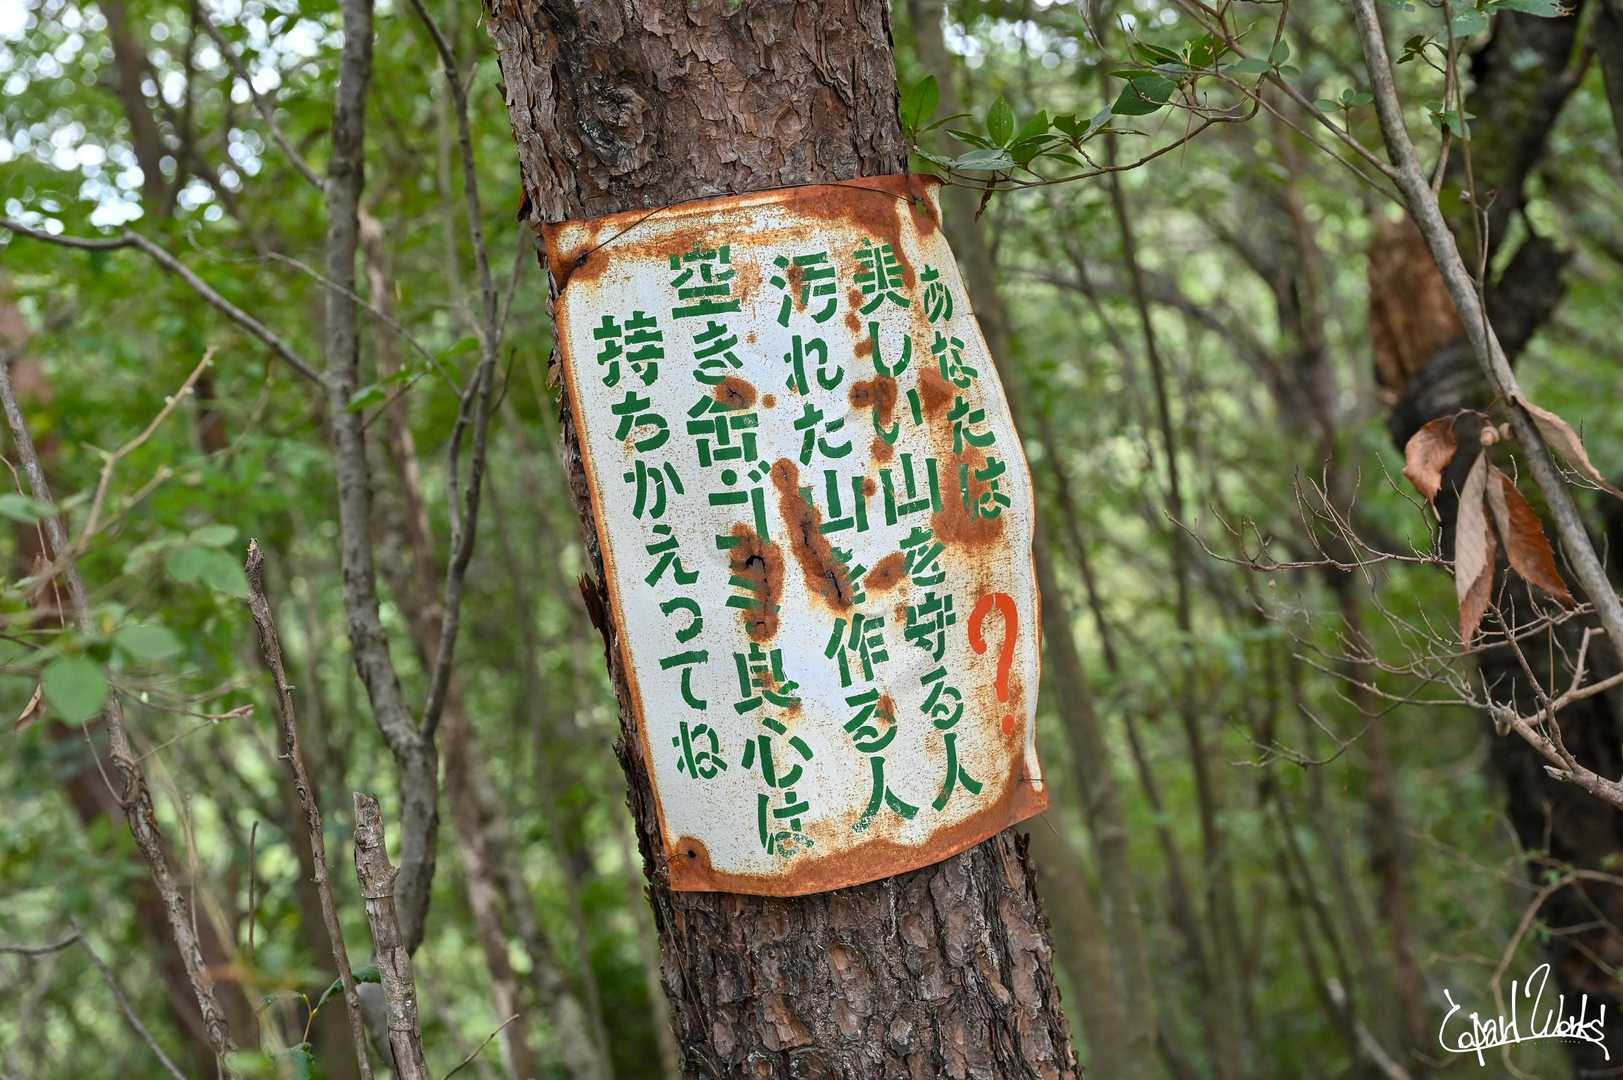 あなたは?
美しい山を守る人
汚れた山を作る人
空き缶ゴミ良心は
持ちかえってね